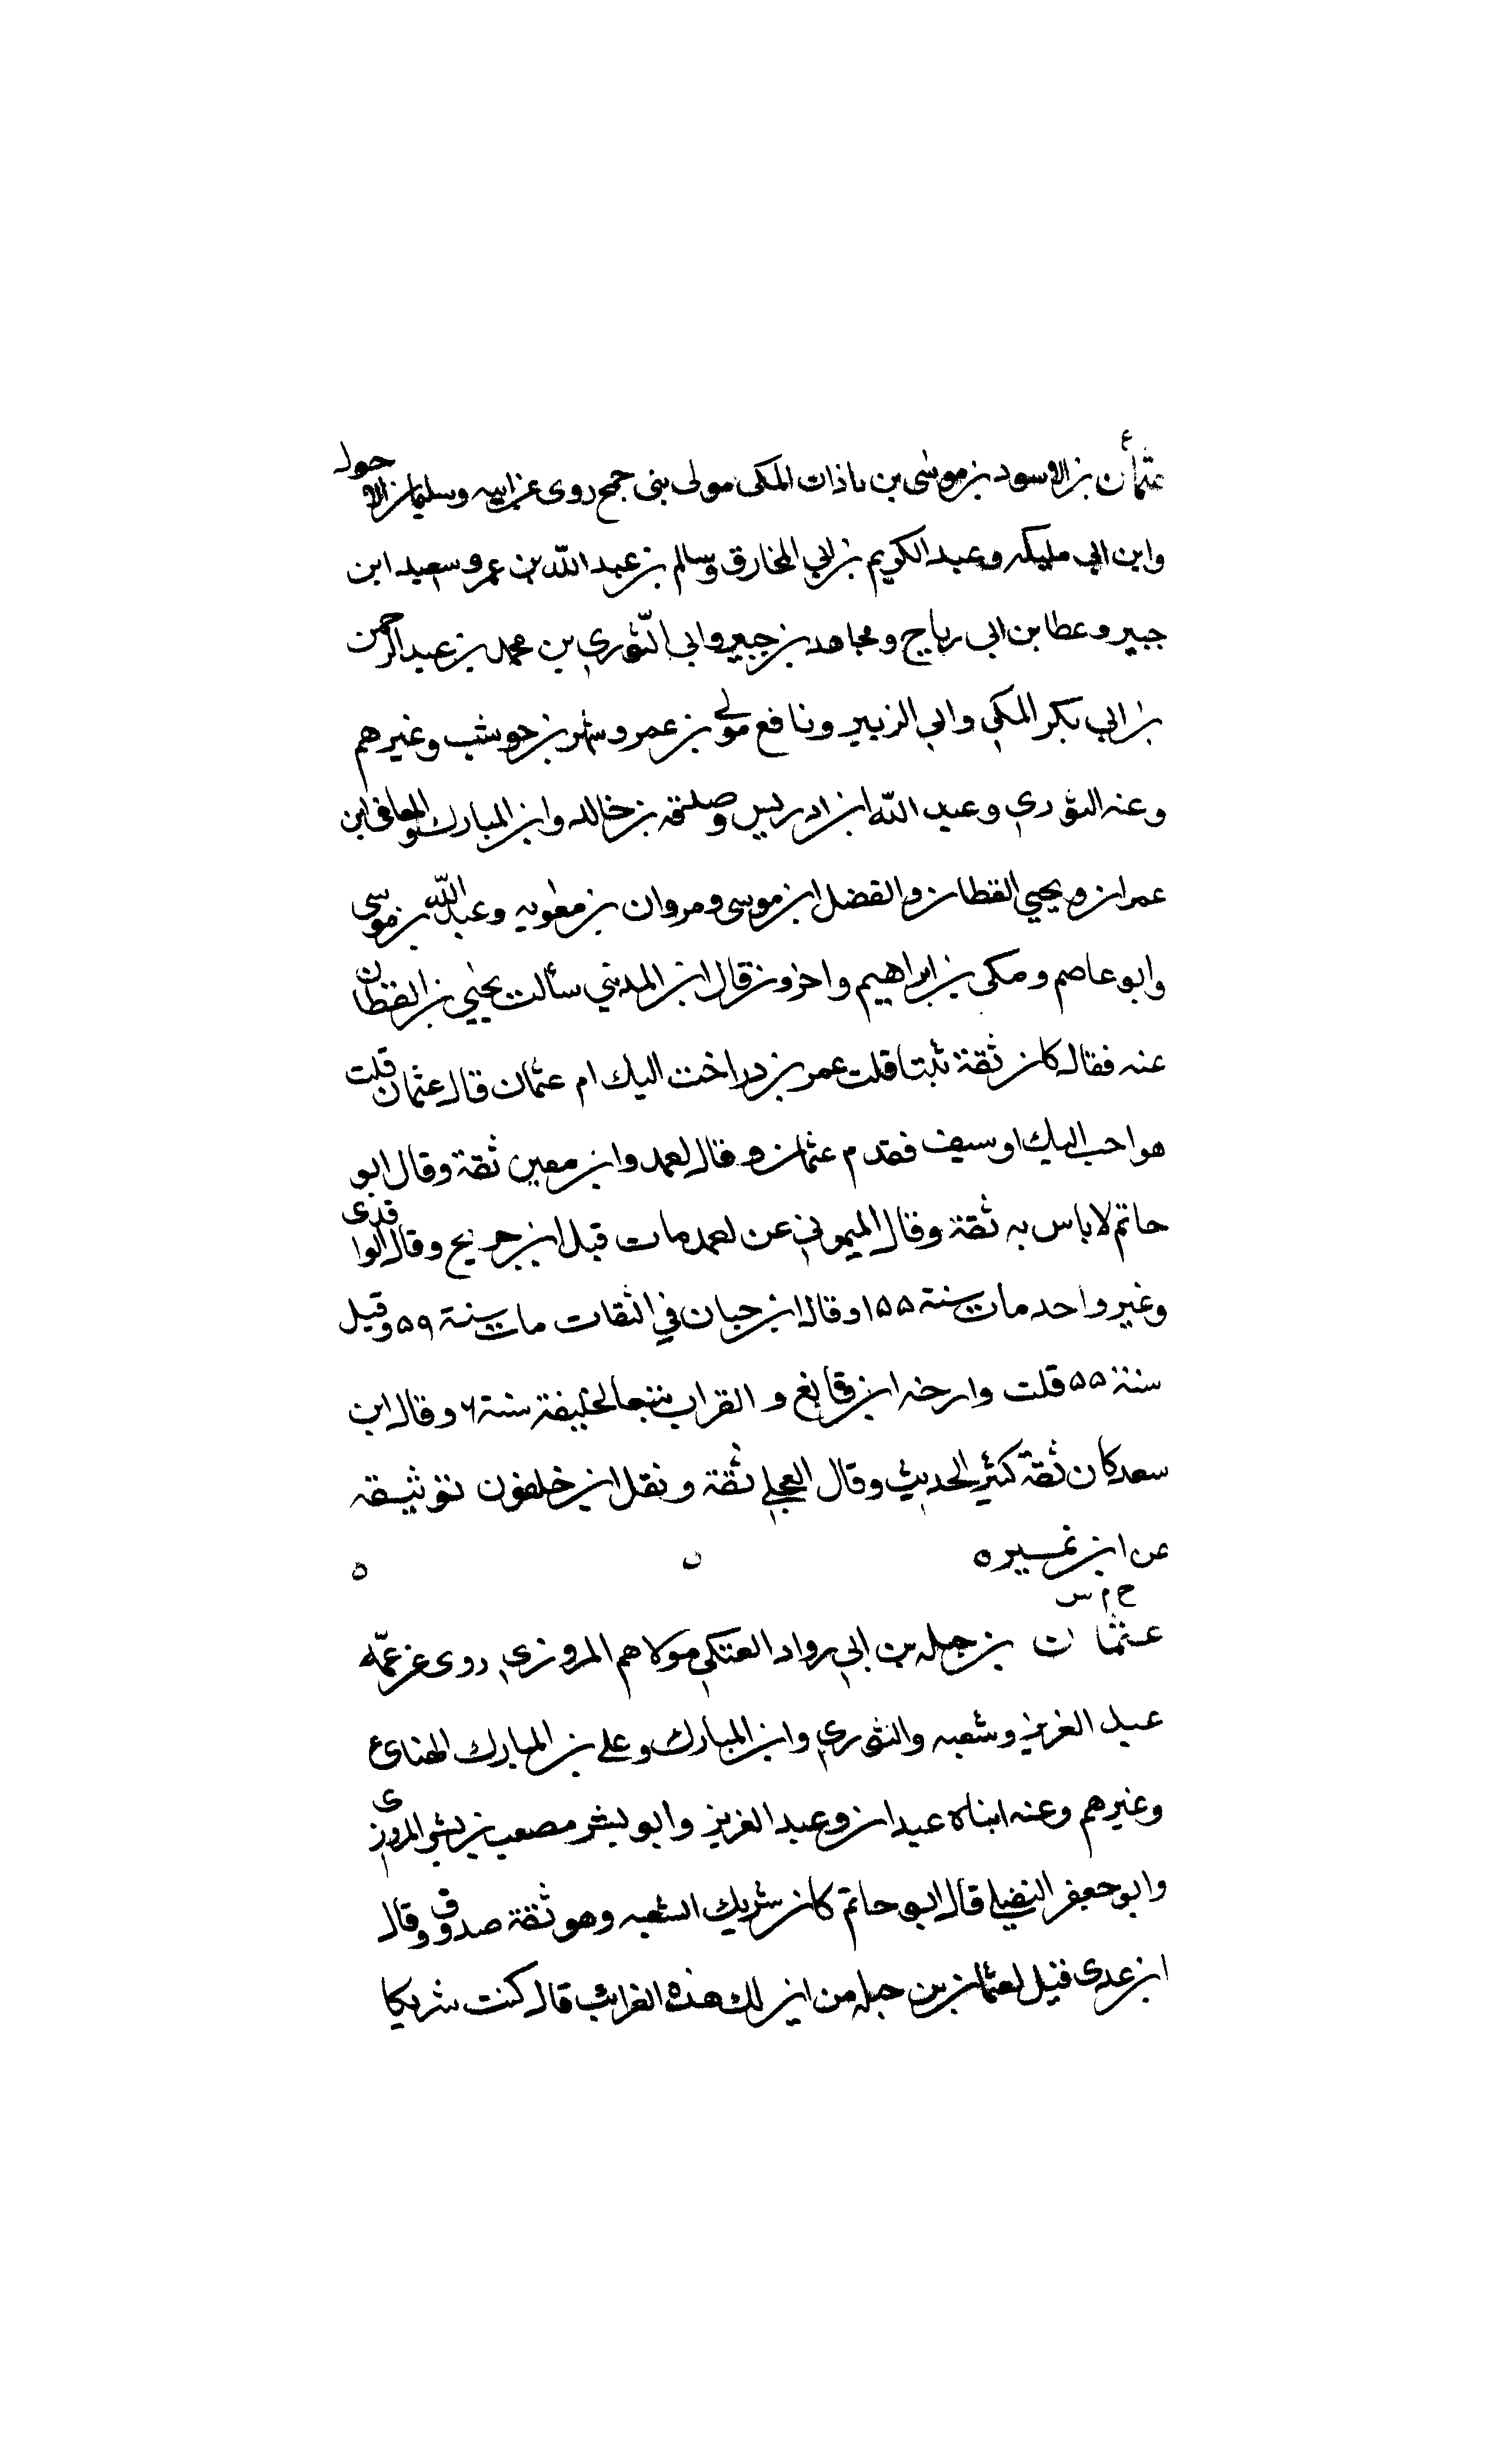 ع
عثمان بن الاسود بن موسى بن باذات المكى مولى بنى جمح روى عن ابيه وسليمان الاحول
وابن ابي مليكه وعبد الكريم بن ابي المخارق وسالم بن عبد الله بن عمر وسعيد ابن
جبير وعطا بن ابى رباح ومجاهد بن جبير وابى الثوري بن محمد بن عبد الرحمن
بن ابي بكر المكي وابي الزبير ونافع مولى بن عمر وشهر بن حوشب وغيرهم
وعنه الثوري وعبد الله ابن ادريس وصدقه بن خالد وابن المبارك والمعافى ابن
عمران ويحيي القطان والفضل ابن موسى ومروان بن معويه وعبد الله بن موسى
وابو عاصم ومكى بن ابراهيم واخرون قال ابن المديني سألت يحيي بن القطان
عنه فقال كان ثقة ثبتا قلت عمر بن در اخت اليك ام عثمان قال عثمان قلت
هو احب اليك او سيف فقدم عثمان وقال لعمد وابن معين ثقة وقال ابو
حاتم لا باس به ثقة وقال الميموني عن لعمد مات قبل ابن جريج وقال الواقدى
وغير واحد مات سنة ١٥٥ وقال ابن حبان في الثقات مات سنة ٥٩ وقيل
سنة ٥٥ قلت وارخه ابن قانع و القراب تبعا لخليفة سنة ٦ وقال ابن
سعد كان ثقة كثير الحديث وقال العجلي ثقة ونقل ابن خلفون توثيقه
عن ابن نمير ه ه ه
خ م س
عثمان بن جبله بن ابي رواد العتكي مولاهم المروزي روى عن عمّه
عبد العزيز وشعبه والثوري وابن المبارك وعلى بن المبارك الهنائ
وغيرهم وعنه ابناه عبدان وعبد العزيز وابو بشر مصعب بن بشر المروزى
وابو جعفر النفيلي قال ابو حاتم كان شريك الشعبه وهو ثقة صدوق وقال
ابن عدى قيل لعثمان بن جبله من اين لك هذه الغرائب قال كنت شريكا